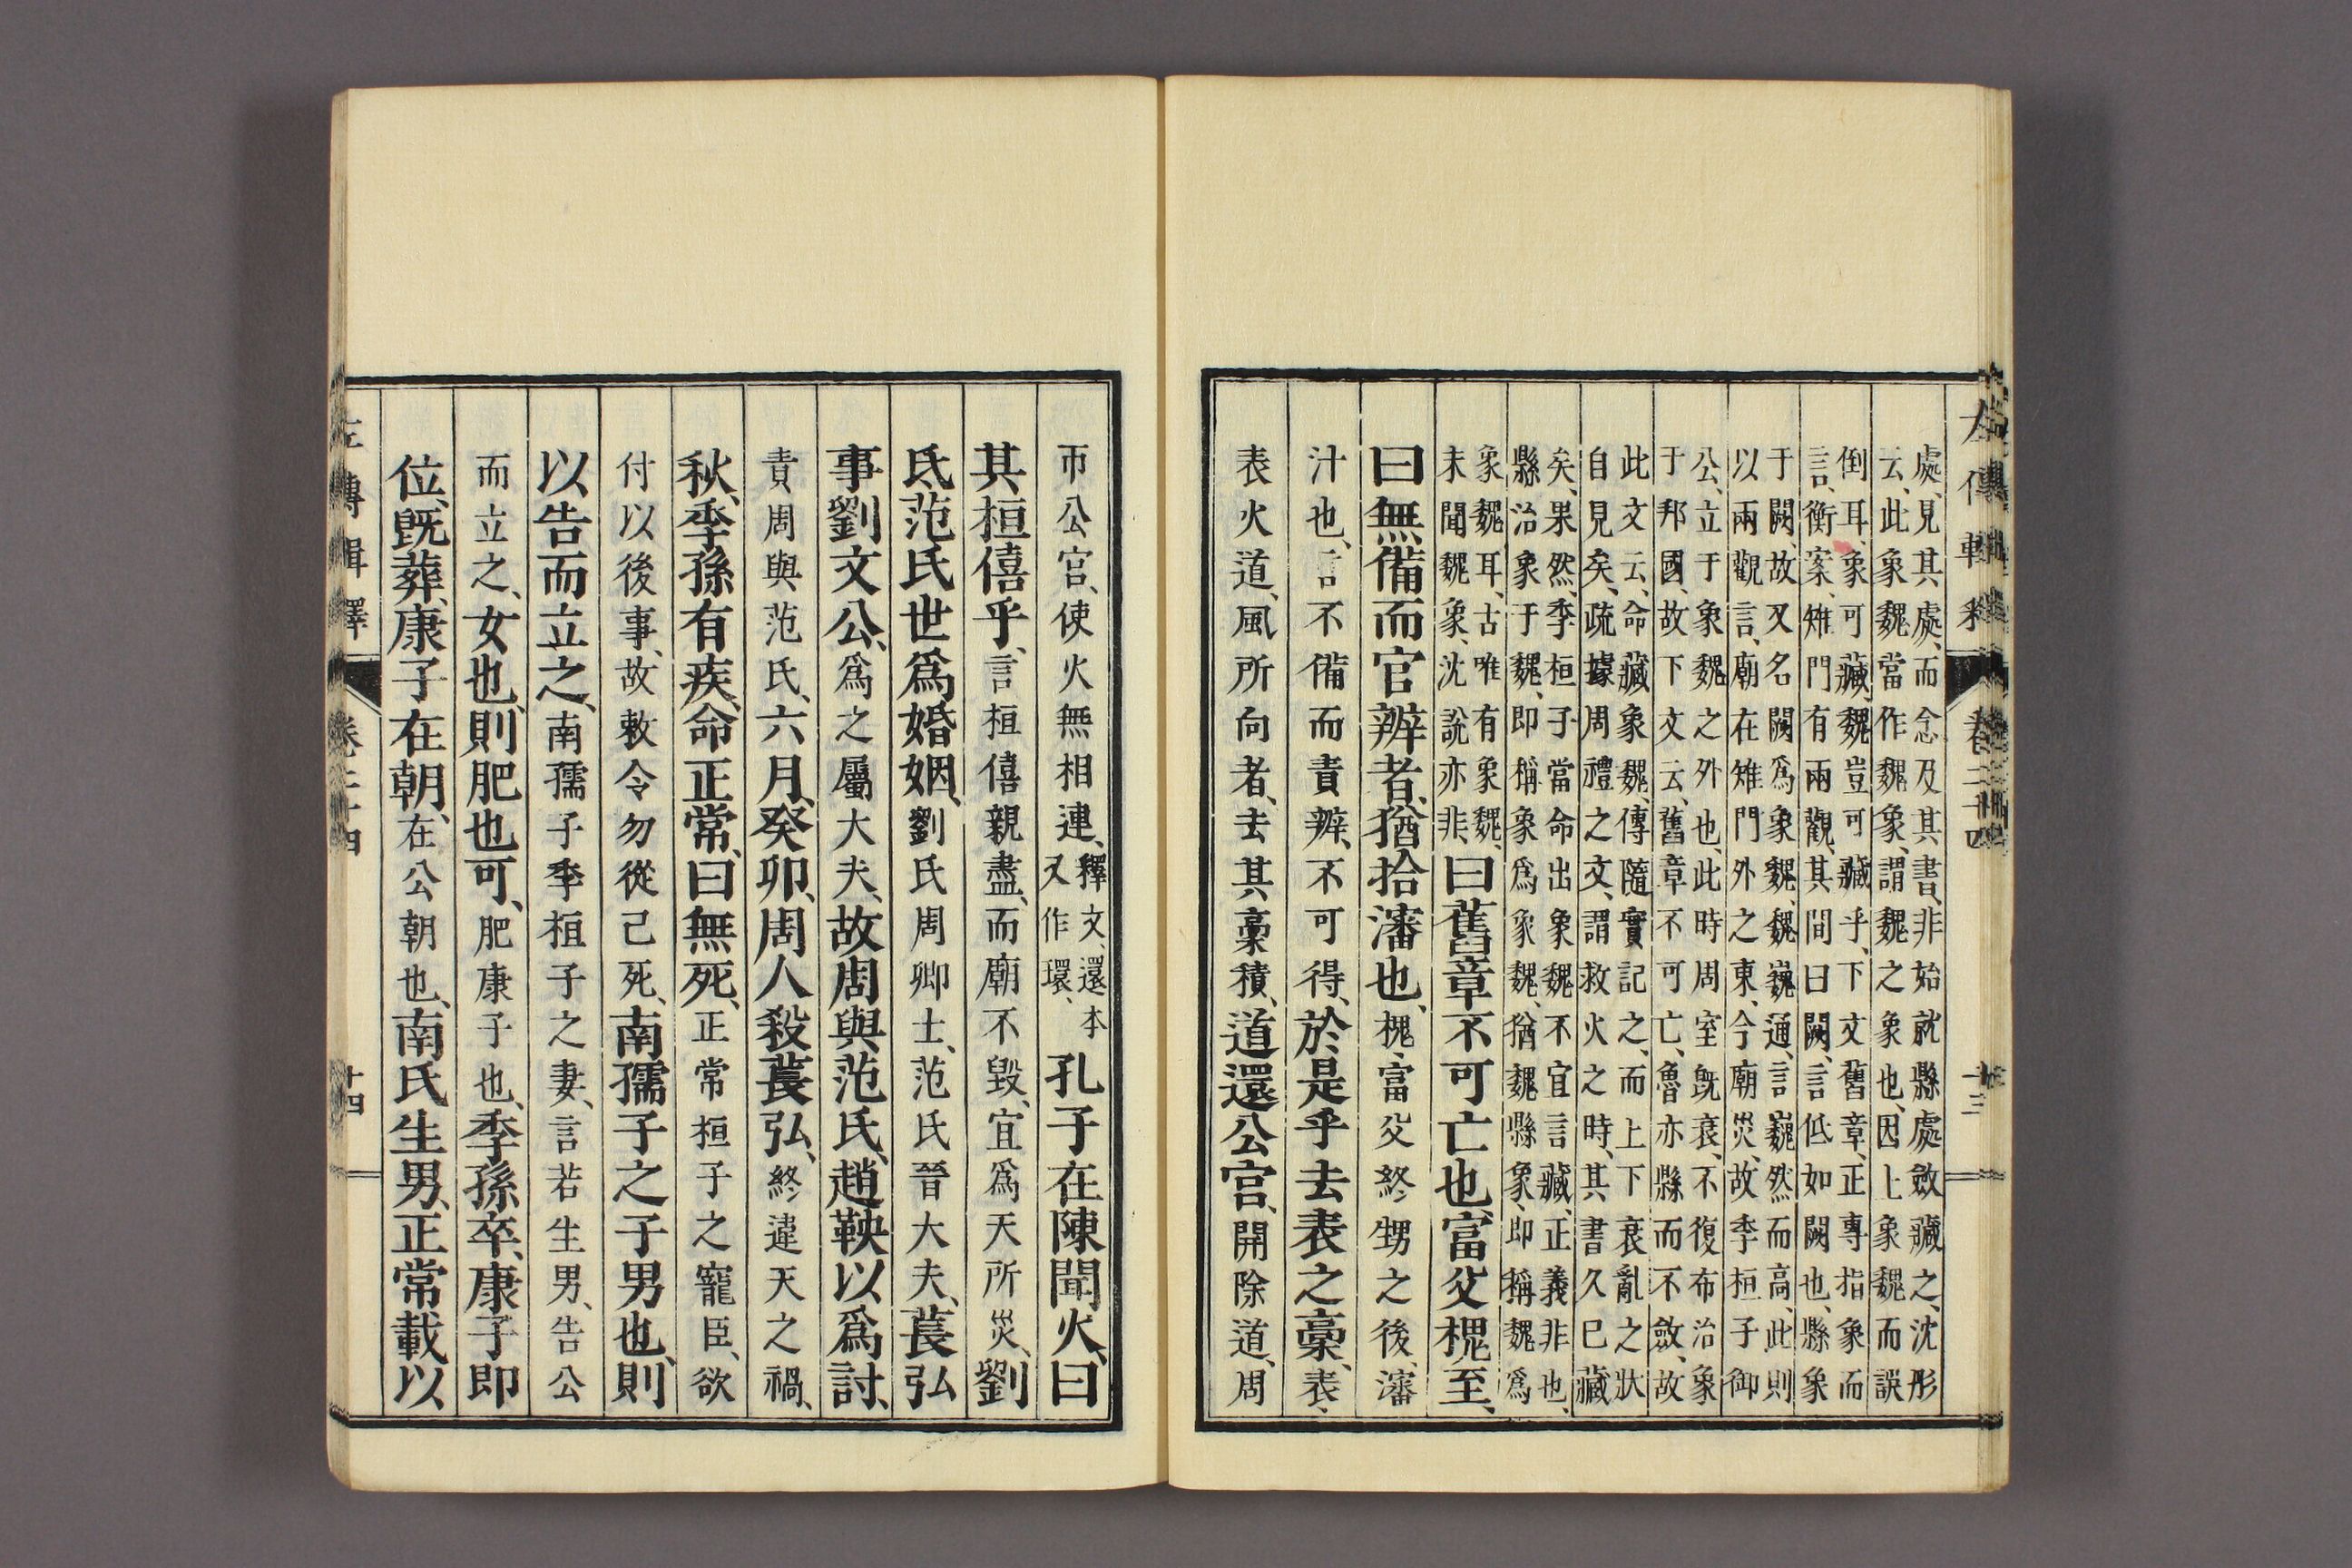 左傳輯釋 卷二十四 十三
處、見其處、而念及其書、非始就縣處斂藏之、沈彤
云、此象魏當作魏象、謂魏之象也、因上象魏而誤
倒耳、象可藏、魏豈可藏乎、下文舊章、正專指象而
言、衡案、雉門有兩觀、其間曰闕、言低如闕也、縣象
于闕、故又名闕爲象魏、魏巍通、言巍然而高、此則
以兩觀言、廟在雉門外之東、今廟災、故季桓子御
公、立于象魏之外也、此時周室既衰、不復布治象
于邦國、故下文云、舊章不可亡、魯亦縣而不斂、故
此文云、命藏象魏、傳隨實記之、而上下衰亂之狀
自見矣、疏據周禮之文、謂救火之時、其書久已藏
矣、果然、季桓子當命出象魏、不宜言藏、正義非也、
縣治象于魏、即稱象爲象魏、猶魏縣象、即稱魏爲
象魏耳、古唯有象魏、
未聞魏象、沈說亦非、曰舊章不可亡也、富父槐至、
曰無備而官辨者、猶拾瀋也、槐、富父終甥之後、瀋
汁也、言不備而責辨、不可得、於是乎去表之稾、表、
表火道、風所向者、去其稾積、道還公宮、開除道、周
帀公宮、使火無相連、釋文、還本又作環、孔子在陳聞火、曰
其桓僖乎、言桓僖親盡、而廟不毀、宜爲天所災、劉
氏范氏世爲婚姻、劉氏周卿士、范氏晉大夫、萇弘
事劉文公、爲之屬大夫、故周與范氏、趙鞅以爲討、
責周與范氏、六月、癸卯、周人殺萇弘、終違天之禍、
秋、季孫有疾、命正常、曰無死、正常桓子之寵臣、欲
付以後事、故敕令勿從己死、南孺子之子男也、則
以告而立之、南孺子季桓子之妻、言若生男、告公
而立之、女也、則肥也可、肥康子也、季孫卒、康子即
位、既葬、康子在朝、在公朝也、南氏生男、正常載以
左傳輯釋 卷二十四 十四